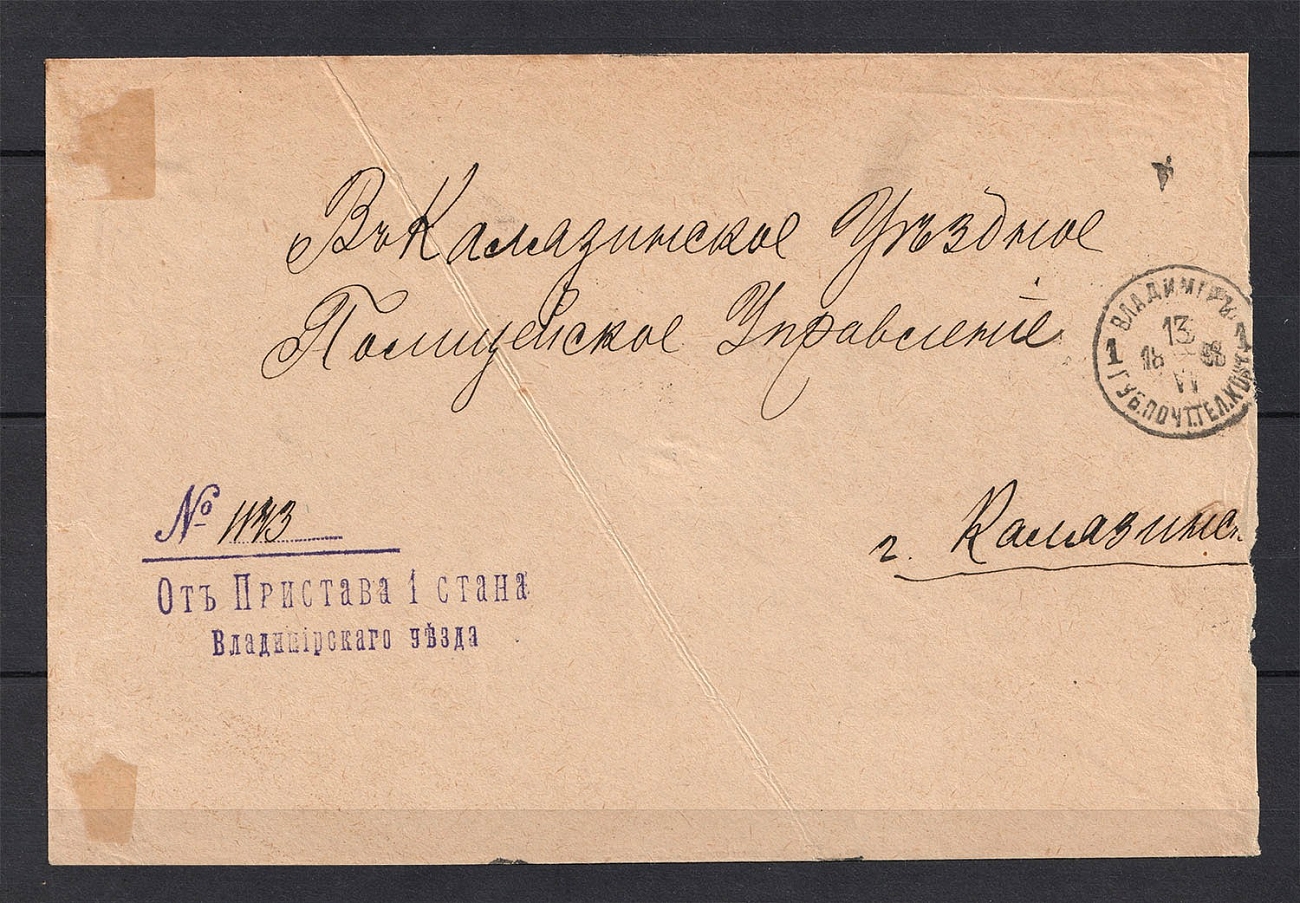 Въ Калязинское Уѣздное
Полицейское Управленіе
ВЛАДИМІРЪ
1 1
13
18 98
VI
ГУБ.ПОЧТ.ТЕЛ.КОНТ.
г. Калязинъ
№ 1173
Отъ Пристава 1 стана
Владимірскаго уѣзда